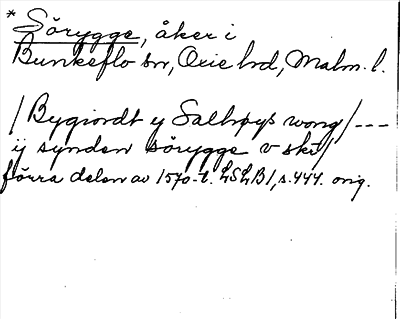 * Sörygge, åker i
Bunkeflo sn, Oxie hd, Malm. l.
/Bygiordt y Salhøys wong/ ---
ij synden sörygge v skt/
förra delen av 1570-t. LSLB1, s. 444. orig.